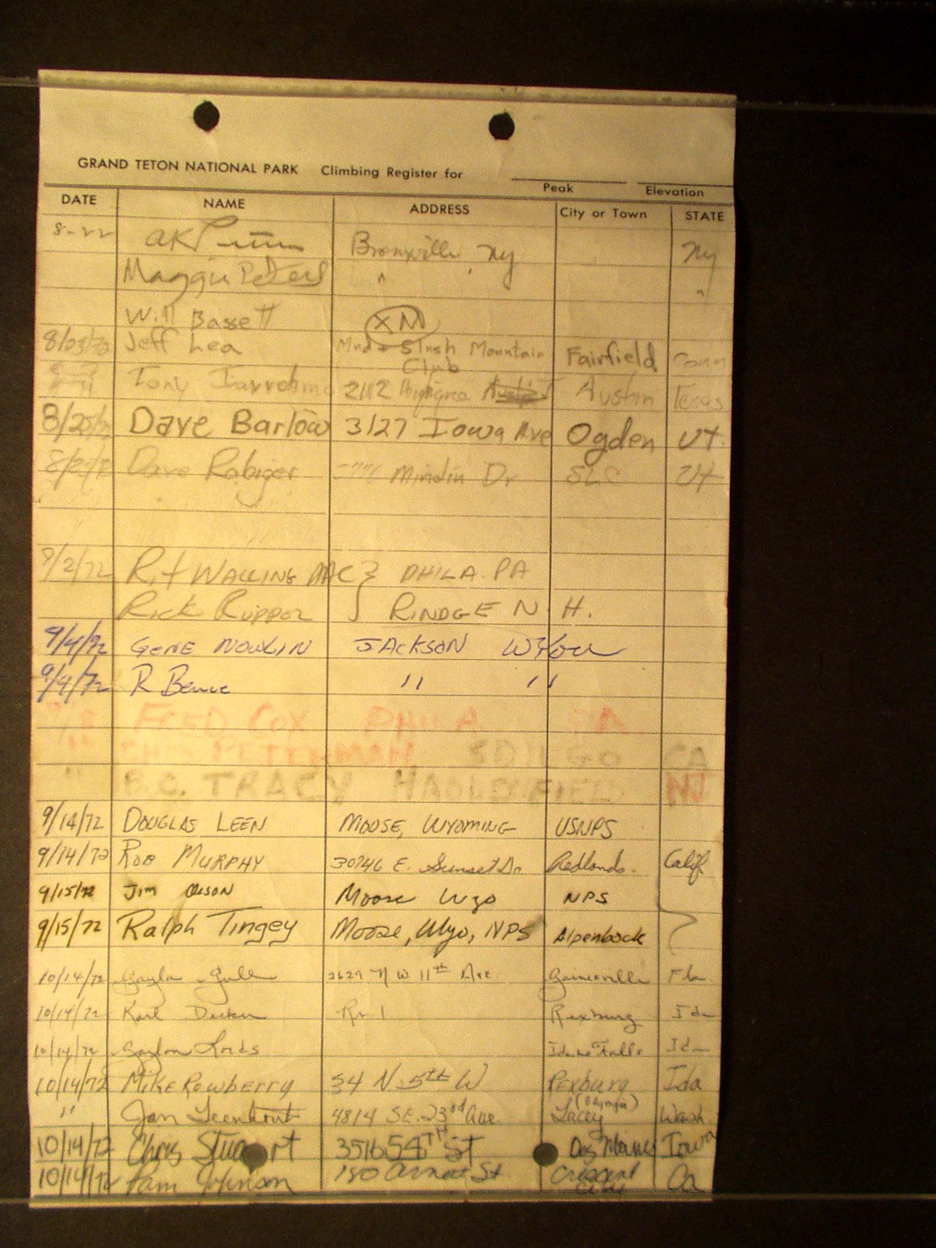 GRAND TETON NATIONAL PARK Climbing Register for
Peak Elevation
DATE NAME ADDRESS City or Town STATE
8-22 Bronxville, Ny Ny
Maggie Peters " "
Will Bassett XM
8/23/72 Jeff Lea Mud & Slush Mountain Club Fairfield Conn
Tony 2112 Austin Texas
8/25/72 Dave Barlow 3127 Iowa Ave Ogden UT.
Dave Rabiger Mindin Dr SLC UT
9/2/72 WALLING PHILA. PA
Rick RINDGE N.H.
9/4/72 GENE NOWLIN JACKSON WYou
9/9/72 R " "
FRED COX PHILA PA.
PETERMAN SDIEGO CA
" B.C. TRACY HADDENFIELD NJ
9/14/72 DOUGLAS LEEN MOOSE, WYOMING USNPS
9/14/72 ROB MURPHY 30746 E. Sunset Dr Redlands. Calif
9/15/72 JIM OLSON Moose Wyo NPS
9/15/72 Ralph Tingey Moose, Wyo, NPS Alpenbock
10/14/72 2629 N W 11th Ave Gainesville Fla
10/14/72 Karl Decker Rr 1 Rexburg Ida
10/14/72 Gaylon Lords Idaho Falls Ida
10/14/72 Mike Rowberry 34 N. 5th W Rexburg Ida
" Jan 4814 SE. 23rd Ave. Lacey (Olympia) Wash
10/14/72 Chris Stuart 3516 54TH St Des Moines Iowa
10/14/72 Pam Johnson 180 St Crescent City Ca